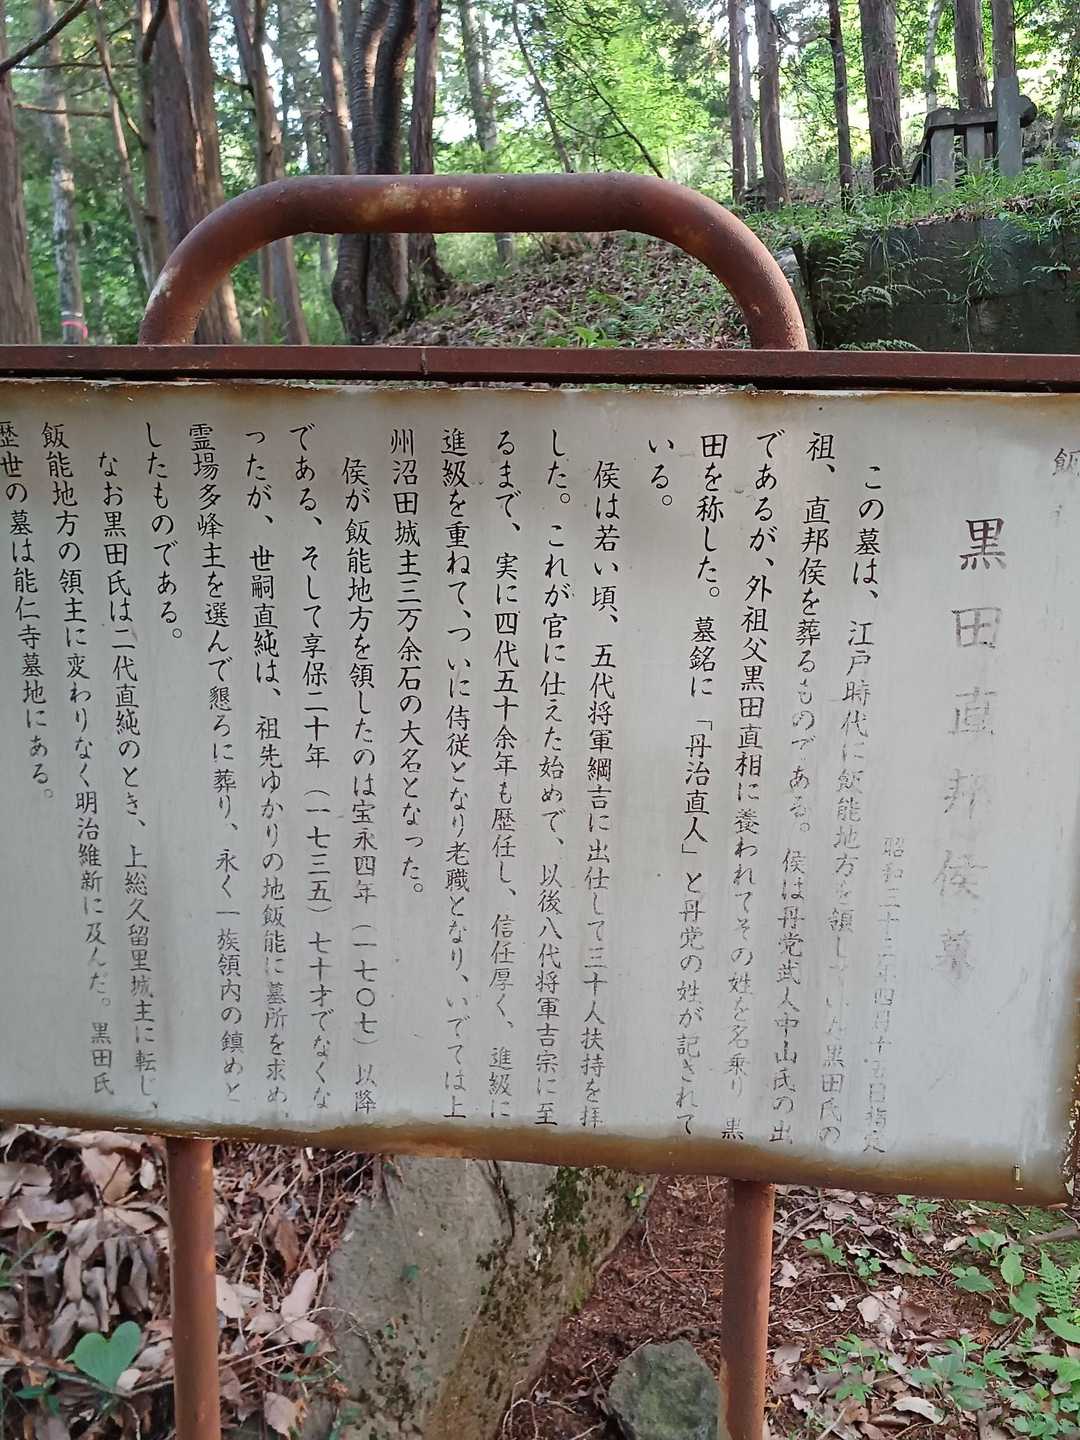 飯
黒田直邦侯墓
昭和三十三年四月十五日指定
この墓は、江戸時代に飯能地方を領していた黒田氏の
祖、直邦侯を葬るものである。侯は丹党武人中山氏の出
であるが、外祖父黒田直相に養われてその姓を名乗り黒
田を称した。墓銘に「丹治直人」と丹党の姓が記されて
いる。
侯は若い頃、五代将軍綱吉に出仕して三十人扶持を拝
した。これが官に仕えた始めで、以後八代将軍吉宗に至
るまで、実に四代五十余年も歴任し、信任厚く、進級に
進級を重ねて、ついに侍従となり老職となり、いでては上
州沼田城主三万余石の大名となった。
侯が飯能地方を領したのは宝永四年（一七〇七）以降
である、そして享保二十年（一七三五）七十才でなくな
ったが、世嗣直純は、祖先ゆかりの地飯能に墓所を求め、
霊場多峰主を選んで懇ろに葬り、永く一族領内の鎮めと
したものである。
なお黒田氏は二代直純のとき、上総久留里城主に転じ、
飯能地方の領主に変わりなく明治維新に及んだ。黒田氏
歴世の墓は能仁寺墓地にある。